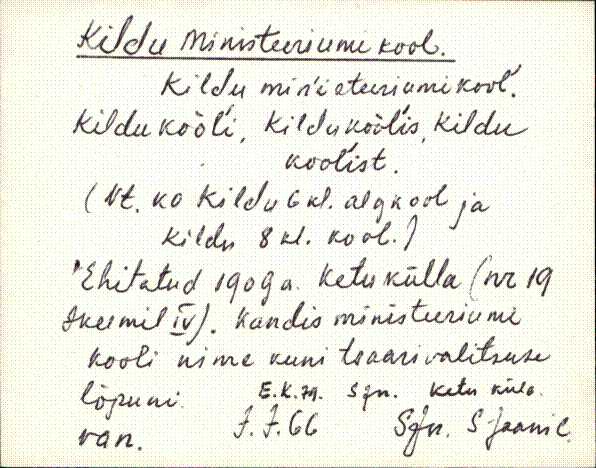 Kildu Ministeeriumi kool.
Kildu ministeeriumi kool.
Kildu kooli, Kildu koolis, Kildu
koolist.
(Vt. ka Kildu 6 kl. algkool ja
Kildu 8 kl. kool.)
Ehitatud 1909 a. Ketu külla (nr 19
skeemil IV). Kandis ministeeriumi
kooli nime kuni tsaarivalitsuse
lõpuni. E.K.79. Sjn. Ketu küla.
van. J.J. 66 Sjn. S. Jaanil.